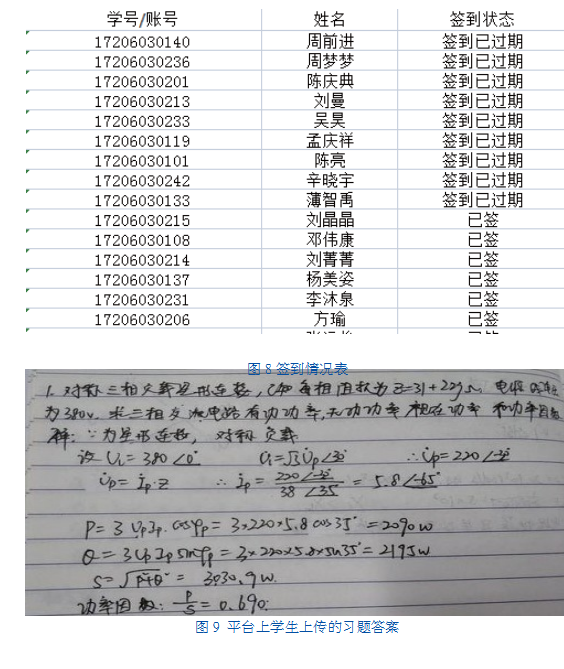 学号/账号 姓名 签到状态
17206030140 周前进 签到已过期
17206030236 周梦梦 签到已过期
17206030201 陈庆典 签到已过期
17206030213 刘曼 签到已过期
17206030233 吴昊 签到已过期
17206030119 孟庆祥 签到已过期
17206030101 陈亮 签到已过期
17206030242 辛晓宇 签到已过期
17206030133 薄智禹 签到已过期
17206030215 刘晶晶 已签
17206030108 邓伟康 已签
17206030214 刘菁菁 已签
17206030137 杨美姿 已签
17206030231 李沐泉 已签
17206030206 方瑜 已签
图 8 签到情况表
1. 对称三相负载星形连接, 每相阻抗为 Z=31+22jΩ 电源
为380v. 求三相交流电路有功功率, 无功功率 视在功率 和功率因数
解: ∵为星形连接, 对称负载
设 U̇L=380∠0° U̇L=√3U̇p∠30° ∴U̇p=220∠-30°
U̇p=İp·Z ∴İp= 220∠-30° / 38∠35° = 5.8∠-65°
P=3UpIp·cosφp=3×220×5.8cos35°=2090w
Q=3UpIpsinφp=3×220×5.8×sin35°=2195w
S=√P²+Q²=3030.9w.
功率因数: P/S=0.690.
图 9 平台上学生上传的习题答案